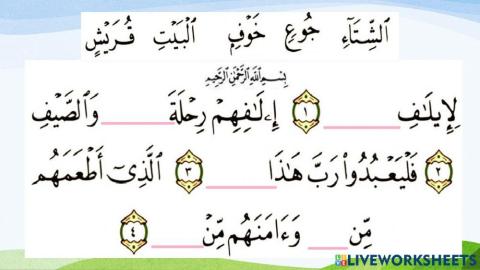 الشِّتَآءِ جُوعٍ خَوْفٍۭ الْبَيْتِ قُرَيْشٍ
بِسْمِ اللَّهِ الرَّحْمَٰنِ الرَّحِيمِ
لِإِيلَٰفِ ______ ١ إِۦلَٰفِهِمْ رِحْلَةَ ______ وَالصَّيْفِ
٢ فَلْيَعْبُدُوا۟ رَبَّ هَٰذَا ______ ٣ الَّذِىٓ أَطْعَمَهُم
مِّن ____ وَءَامَنَهُم مِّنْ ____ ٤
LIVEWORKSHEETS